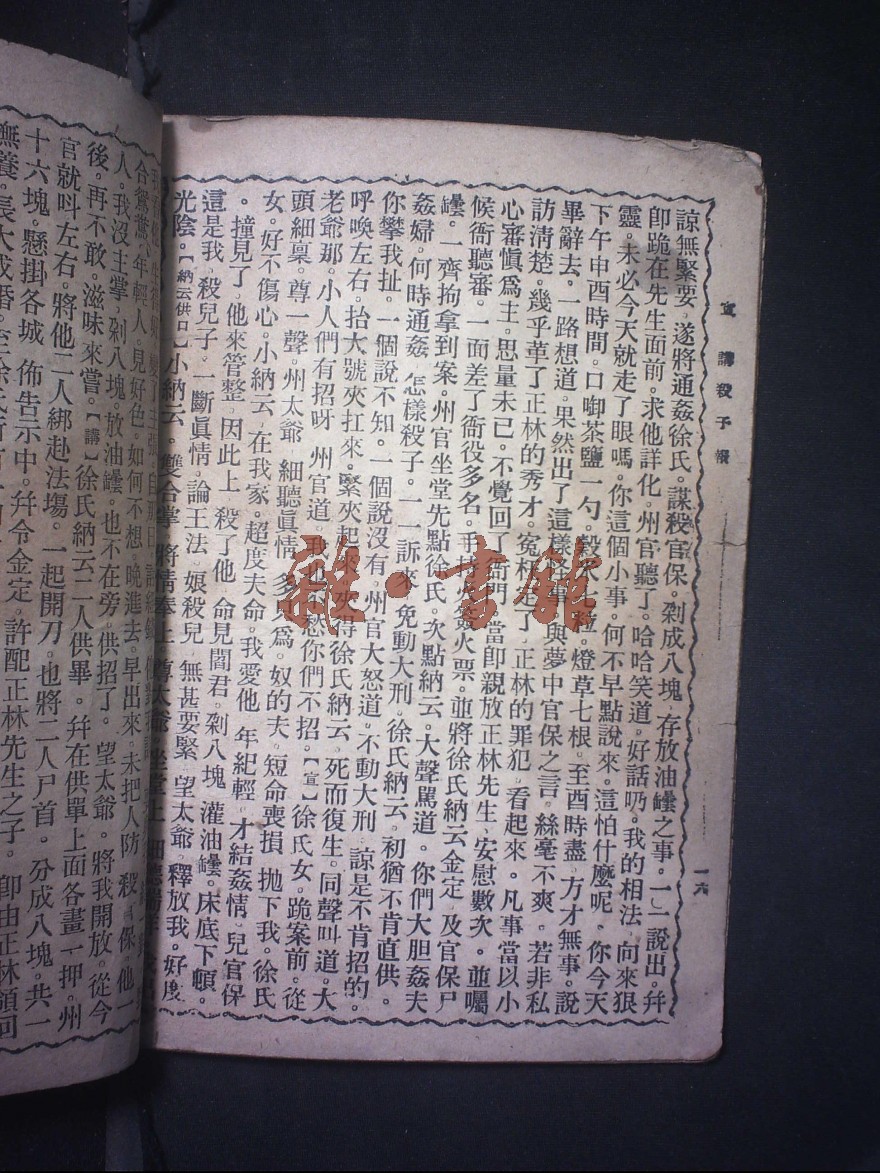 宣講殺子報
一六
諒無緊要。遂將通姦徐氏。謀殺官保。剁成八塊。存放油罎之事。一一說出。幷
卽跪在先生面前。求他詳化。州官聽了。哈哈笑道。好話扔。我的相法。向來狠
靈。未必今天就走了眼嗎。你這個小事。何不早點說來。這怕什麼呢。你今天
下午申酉時間。口啣茶鹽一勺。穀米 粒。燈草七根。至酉時盡。方才無事。說
畢辭去。一路想道。果然出了這樣 事。與夢中官保之言。絲毫不爽。若非私
訪淸楚。幾乎革了正林的秀才。寃枉 定了。正林的罪犯。看起來。凡事當以小
心審愼爲主。思量未已。不覺回了衙門。當卽親放正林先生。安慰數次。並囑
候衙聽審。一面差了衙役多名。手 火簽火票。並將徐氏納云金定。及官保尸
罎。一齊拘拿到案。州官坐堂先點徐氏。次點納云。大聲罵道。你們大胆姦夫
姦婦。何時通姦。怎樣殺子。一一訴來。免動大刑。徐氏納云。初猶不肯直供。
你攀我扯。一個說不知。一個說沒有。州官大怒道。不動大刑。諒是不肯招的。
呼喚左右。抬大號夾扛來。緊夾起來。夾得徐氏納云。死而復生。同聲叫道。大
老爺那。小人們有招呀。州官道。我 不愁你們不招。【宣】徐氏女。跪案前。從
頭細稟。尊一聲。州太爺。細聽眞情。多 爲。奴的夫。短命喪損。拋下我。徐氏
女。好不傷心。小納云。在我家。超度夫命。我愛他。年紀輕。才結姦情。兒官保
。撞見了。他來管整。因此上。殺了他。命見閻君。剁八塊。灌油罎。床底下頓。
這是我。殺兒子。一斷眞情。論王法。娘殺兒。無甚要緊。望太爺。釋放我。好度
光陰。【納云供口】小納云。雙合掌。將情奉上。尊太爺。坐堂上。細聽
合鴛鴦。年輕人。見好色。如何不想。晚進去。早出來。未把人防。殺官保。他一
人。我沒主掌。剁八塊。放油罎。也不在旁。供招了。望太爺。將我開放。從今
後。再不敢。滋味來嘗。【講】徐氏納云二人供畢。幷在供單上面各畫一押。州
官就呌左右。將他二人綁赴法塲。一起開刀。也將二人尸首。分成八塊。共一
十六塊。懸掛各城。佈告示中。幷令金定。許配正林先生之子。卽由正林領回
撫養。長大成番。至徐氏
雜·書館